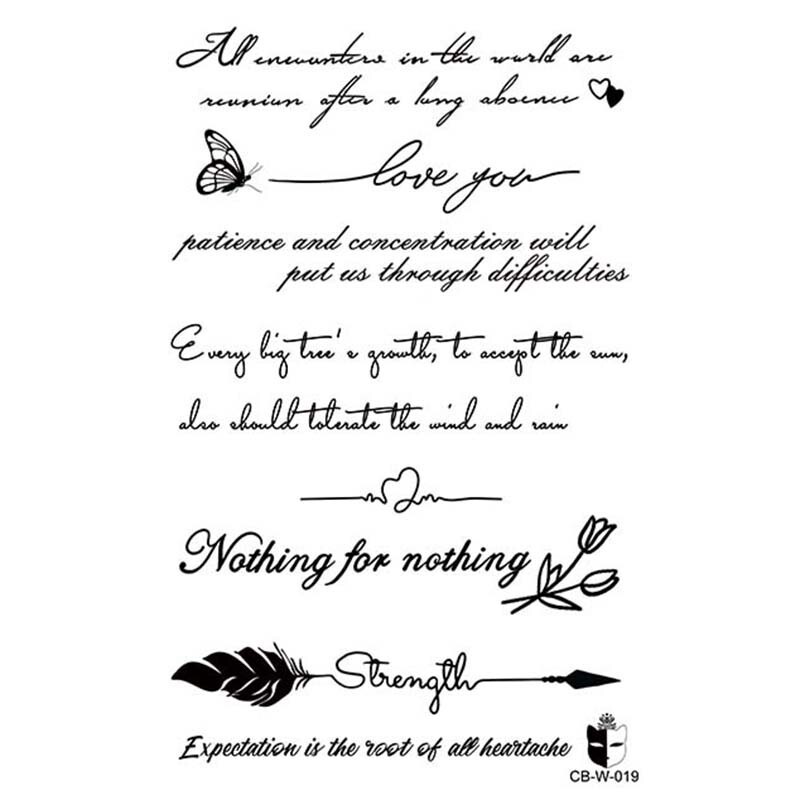 All encounters in the world are
reunion after a long absence
love you
patience and concentration will
put us through difficulties
Every big tree's growth, to accept the sun,
also should tolerate the wind and rain
Nothing for nothing
Strength
Expectation is the root of all heartache
CB-W-019